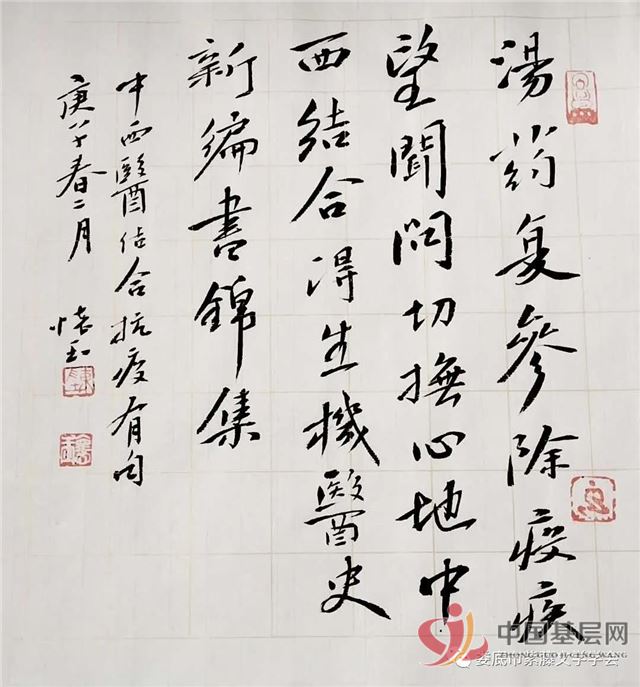 湯药复參除疫疾
望聞问切撫心地中
西结合得生機醫史
新编書錦集
中西醫结合抗疫有句
庚子春二月 懷玉
中国基层网
ZHONG GUO JI CENG WANG
娄底市紫藤文学学会